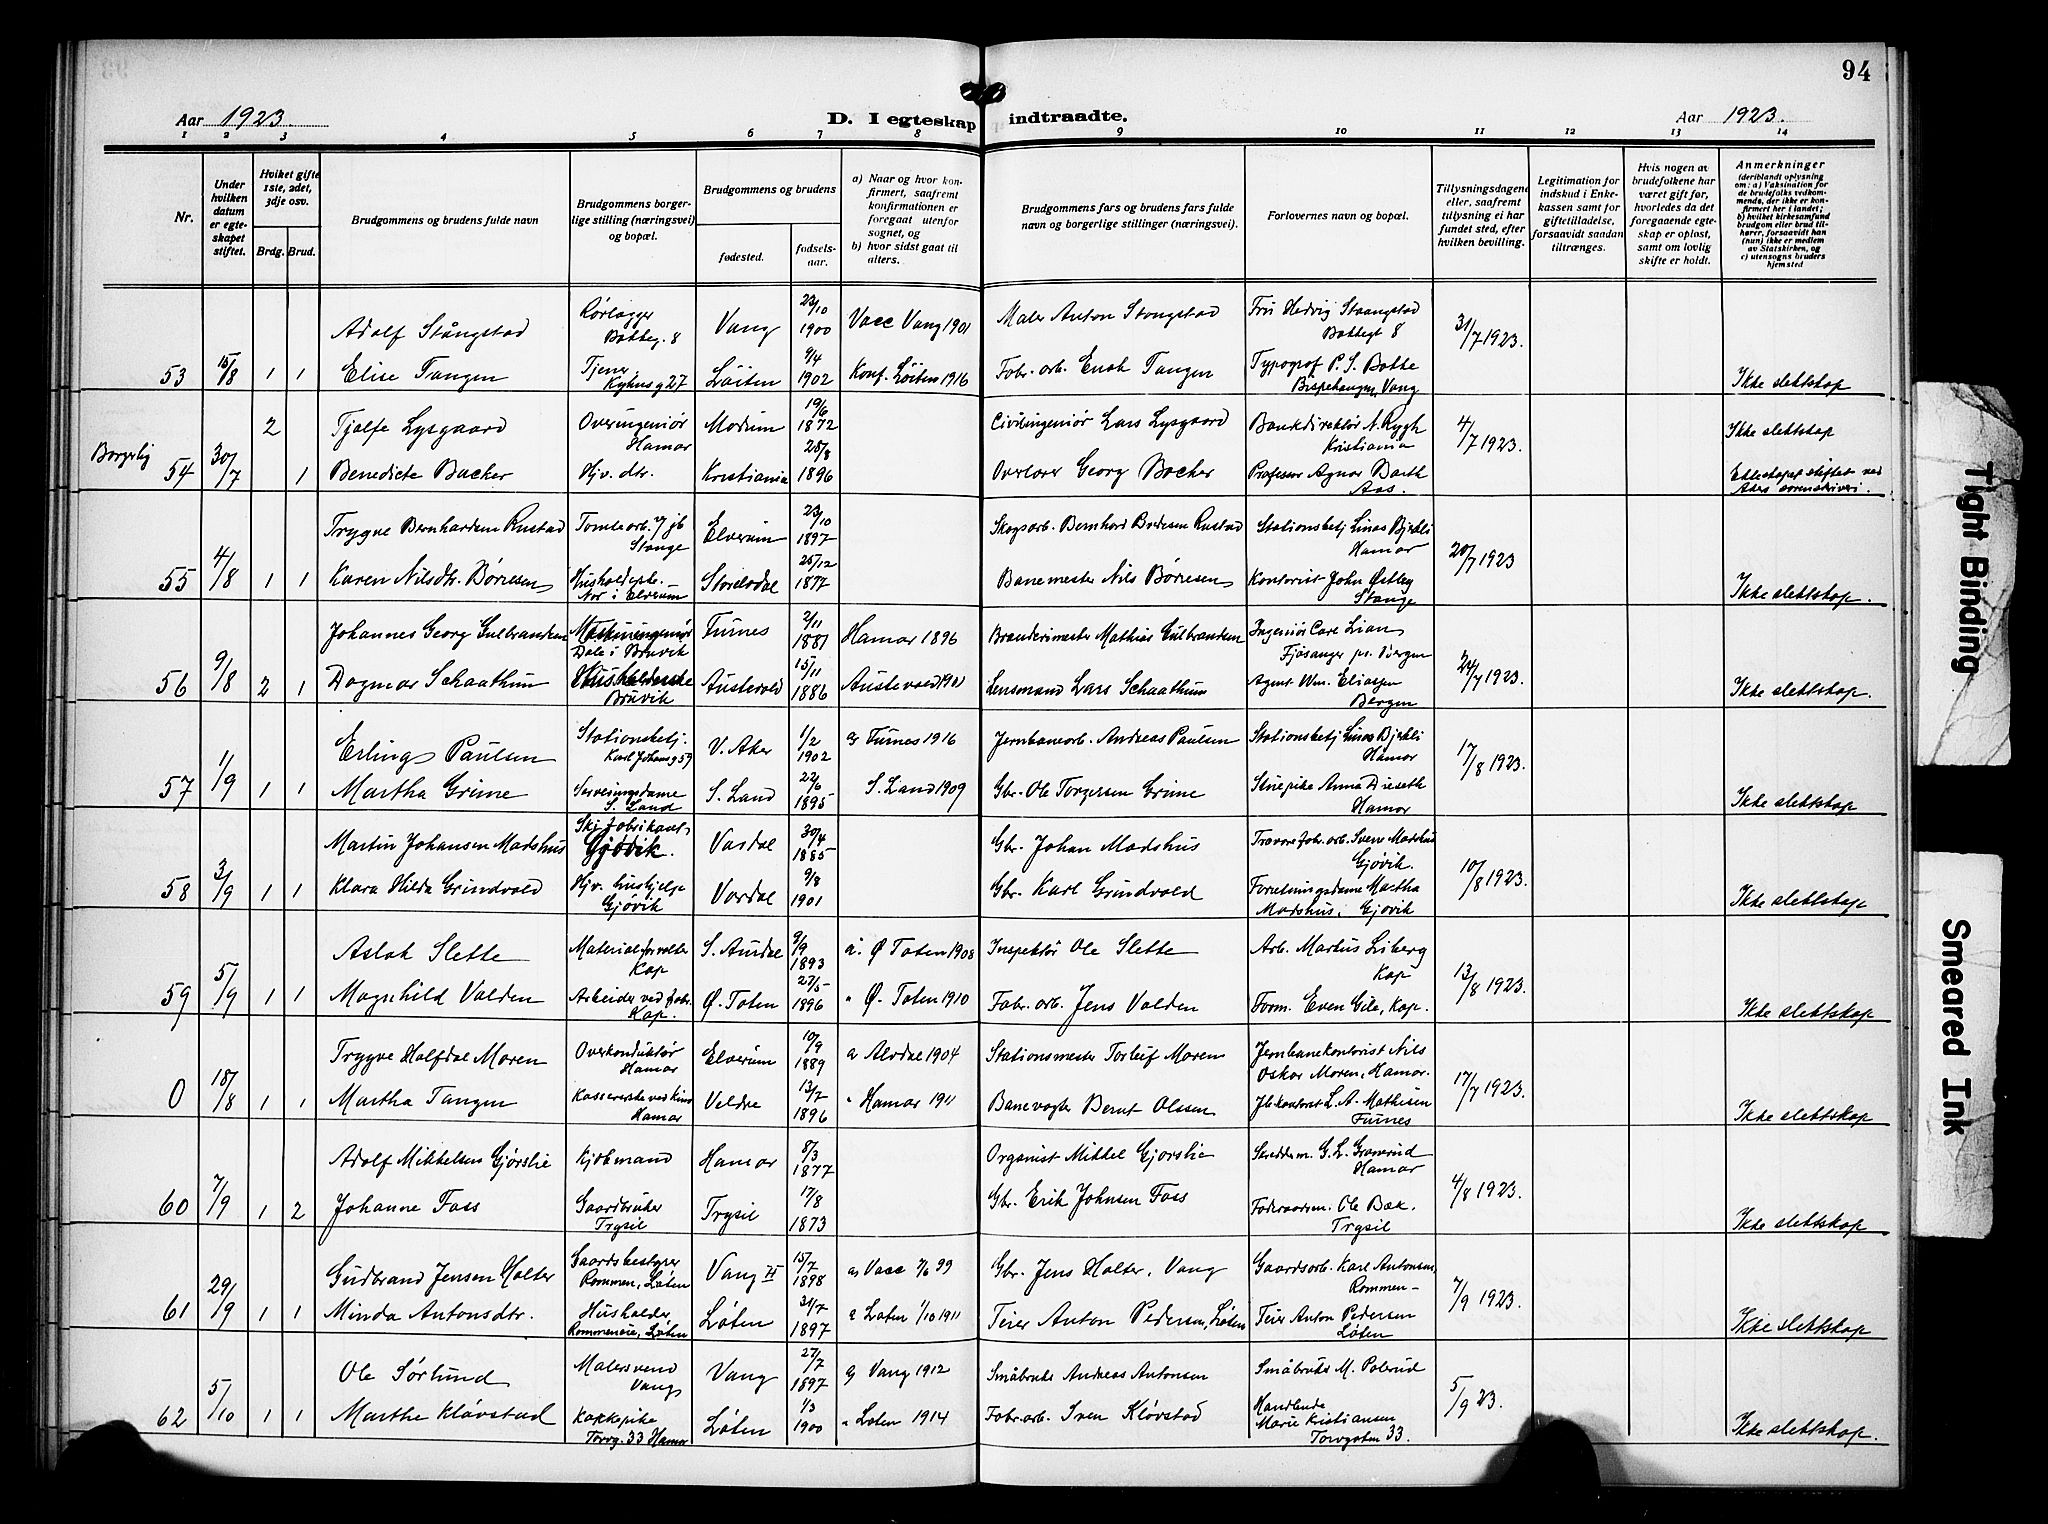 94
Aar 1923.
D. I egteskap indtraadte.
Aar 1923.
1 2 3 4 5 6 7 8 9 10 11 12 13 14
Nr.
Under hvilken datum er egteskapet stiftet.
Hvilket gifte 1ste, 2det, 3dje osv.
Brdg. Brud.
Brudgommens og brudens fulde navn
Brudgommens borgerlige stilling (næringsvei) og bopæl.
Brudgommens og brudens
fødested.
fødselsaar.
a) Naar og hvor konfirmert, saafremt konfirmationen er foregaat utenfor sognet, og
b) hvor sidst gaat til alters.
Brudgommens fars og brudens fars fulde navn og borgerlige stillinger (næringsvei).
Forlovernes navn og bopæl.
Tillysningsdagene eller, saafremt tillysning ei har fundet sted, efter hvilken bevilling.
Legitimation for indskud i Enkekassen samt for giftetilladelse, forsaavidt saadan tiltrænges.
Hvis nogen av brudefolkene har været gift før, hvorledes da det foregaaende egteskap er opløst, samt om lovlig skifte er holdt.
Anmerkninger
(deriblandt oplysning om: a) Vaksination for de brudefolks vedkommende, der ikke er konfirmert her i landet; b) hvilket kirkesamfund brudgom eller brud tilhører, forsaavidt han (hun) ikke er medlem av Statskirken, og c) utensogns bruders hjemsted
Adolf Stångstad Rørlægger Bakkeg. 8 Vang 23/10 1900 Vacc Vang 1901 Maler Anton Stongstad Fru Hedvig Staangstad Bakkegt 8 31/7 1923.
53 15/8 1 1 Elise Tangen Tjener Kyhnsg 27 Løiten 9/4 1902 Konf. Løiten 1916 Fabr. arb. Enok Tangen Typograf P. S. Bakke Bispehaugen, Vang Ikke slektskap
2 Tjalfe Lysgaard Overingeniør Hamar Modum 19/6 1872 Civilingeniør Lars Lysgaard Bankdirektør N. Rygh Kristiania 4/7 1923. Ikke slektskap
Borgerlig 54 30/7 1 Benedicte Backer Hjv. dtr. Kristiania 28/8 1896 Overlærer Georg Backer Professor Agnar Barth Aas. Ekteskapet stiftet ved Akers sorenskriveri.
Trygve Bernhardsen Rustad Tomtearb. v/ jb Stange Elverum 23/10 1897 Skogsarb. Bernhard Bardesen Rustad Stationsbetj Linas Bjekli Hamar 20/7 1923
55 4/8 1 1 Karen Nilsdtr. Børresen Husholderske Nor i Elverum Storelvdal 25/12 1877 Banemester Nils Børresen Kontorist John Østby Stange Ikke slektskap.
Johannes Georg Gulbrandsen Maskiningeniør Dale i Bruvik Furnes 2/11 1881 Hamar 1896 Brænderimester Mathias Gulbrandsen Ingeniør Care Lian Fjøsanger pr. Bergen 24/7 1923.
56 9/8 2 1 Dagmar Schaathun Husholderske Bruvik Austevold 15/11 1886 Austevold 1901 Lensmand Lars Schaathun Agent Wm. Eliassen Bergen Ikke slektskap.
Erling Paulsen Stationsbetj. Karl Johansg 59 V. Aker 1/2 1902 a Furnes 1916 Jernbanearb. Andreas Paulsen Stationsbetj Linas Bjekli Hamar 17/8 1923.
57 1/9 1 1 Martha Grime Serveringsdame S. Land S. Land 22/6 1895 S. Land 1909 Gbr. Ole Torgersen Grime Stuepike Anna Dieseth Hamar Ikke slektskap
Martin Johansen Madshus Skifabrikant, Gjøvik. Vardal 30/4 1885 Gbr. Johan Madshus Trævarefabr. arb. Svenn Madshus Gjøvik. 10/8 1923.
58 3/9 1 1 Klara Hilda Grindvold Hjv. hushjelp Gjøvik Vardal 9/8 1901 Gbr. Karl Grindvold Forretningsdame Martha Madshus i Gjøvik Ikke slektskap
Aslak Slette Materialforvalter Kap S. Aurdal 9/9 1893 a. Ø Toten 1908 Inspektør Ole Slette Arb. Martius Liberg Kap 13/8 1923.
59 5/9 1 1 Magnhild Valden Arbeider ved fabr. Kap. Ø. Toten 27/5 1896 " Ø. Toten 1910 Fabr. arb. Jens Valden Form. Even Gile, Kap. Ikke slektskap
Trygve Halfdal Moren Overkonduktør Hamar Elverum 10/9 1889 a Alvdal 1904 Stationsmester Torleif Moren Jernbanekontorist Nils Oskar Moren, Hamar. 17/7 1923.
0 18/8 1 1 Martha Tangen Kassererske ved Kino Hamar Veldre 13/7 1896 " Hamar 1911 Banevogter Bernt Olsen Jb. kontorist L. A. Mathisen Furnes Ikke slektskap
Adolf Mikkelsen Gjørslie Kjøbmand Hamar 8/3 1877 Organist Mikkel Gjørslie Skredderm. G. L. Gravrud Hamar 4/8 1923.
60 7/9 1 2 Johanne Fass Gaardbruker Trysil Trysil 17/8 1873 Gbr. Erik Johnsen Fass Føderaadsm. Ole Bæk. Trysil Ikke slektskap
Gudbrand Jensen Holter Gaardsbestyrer Rommen, Løten Vang 15/7 1898 a Vacc 7/6 99 Gbr. Jens Holter, Vang Gaardsarb. Karl Antonsen, Rommen 7/9 1923.
61 29/9 1 1 Minda Antonsdtr. Husholder Rommeneie, Løten Løten 31/7 1897 a Løten 1/10 1911 Teier Anton Pedersen, Løten Teier Anton Pedersen Løten Ikke slektskap
Ole Sørlund Malersvend Vang Vang 27/7 1897 a Vang 1912 Småbruker Andreas Antonsen Småbruker M. Polerud 5/9 23.
62 5/10 1 1 Marthe Kløvstad Kokkepike Torvg. 33 Hamar Løten 1/3 1900 " Løten 1914 Fabr. arb. Iven Kløvstad Handlende Marie Kristiansen Torvgaten 33. Ikke slektskap.
Tight Binding
Smeared Ink